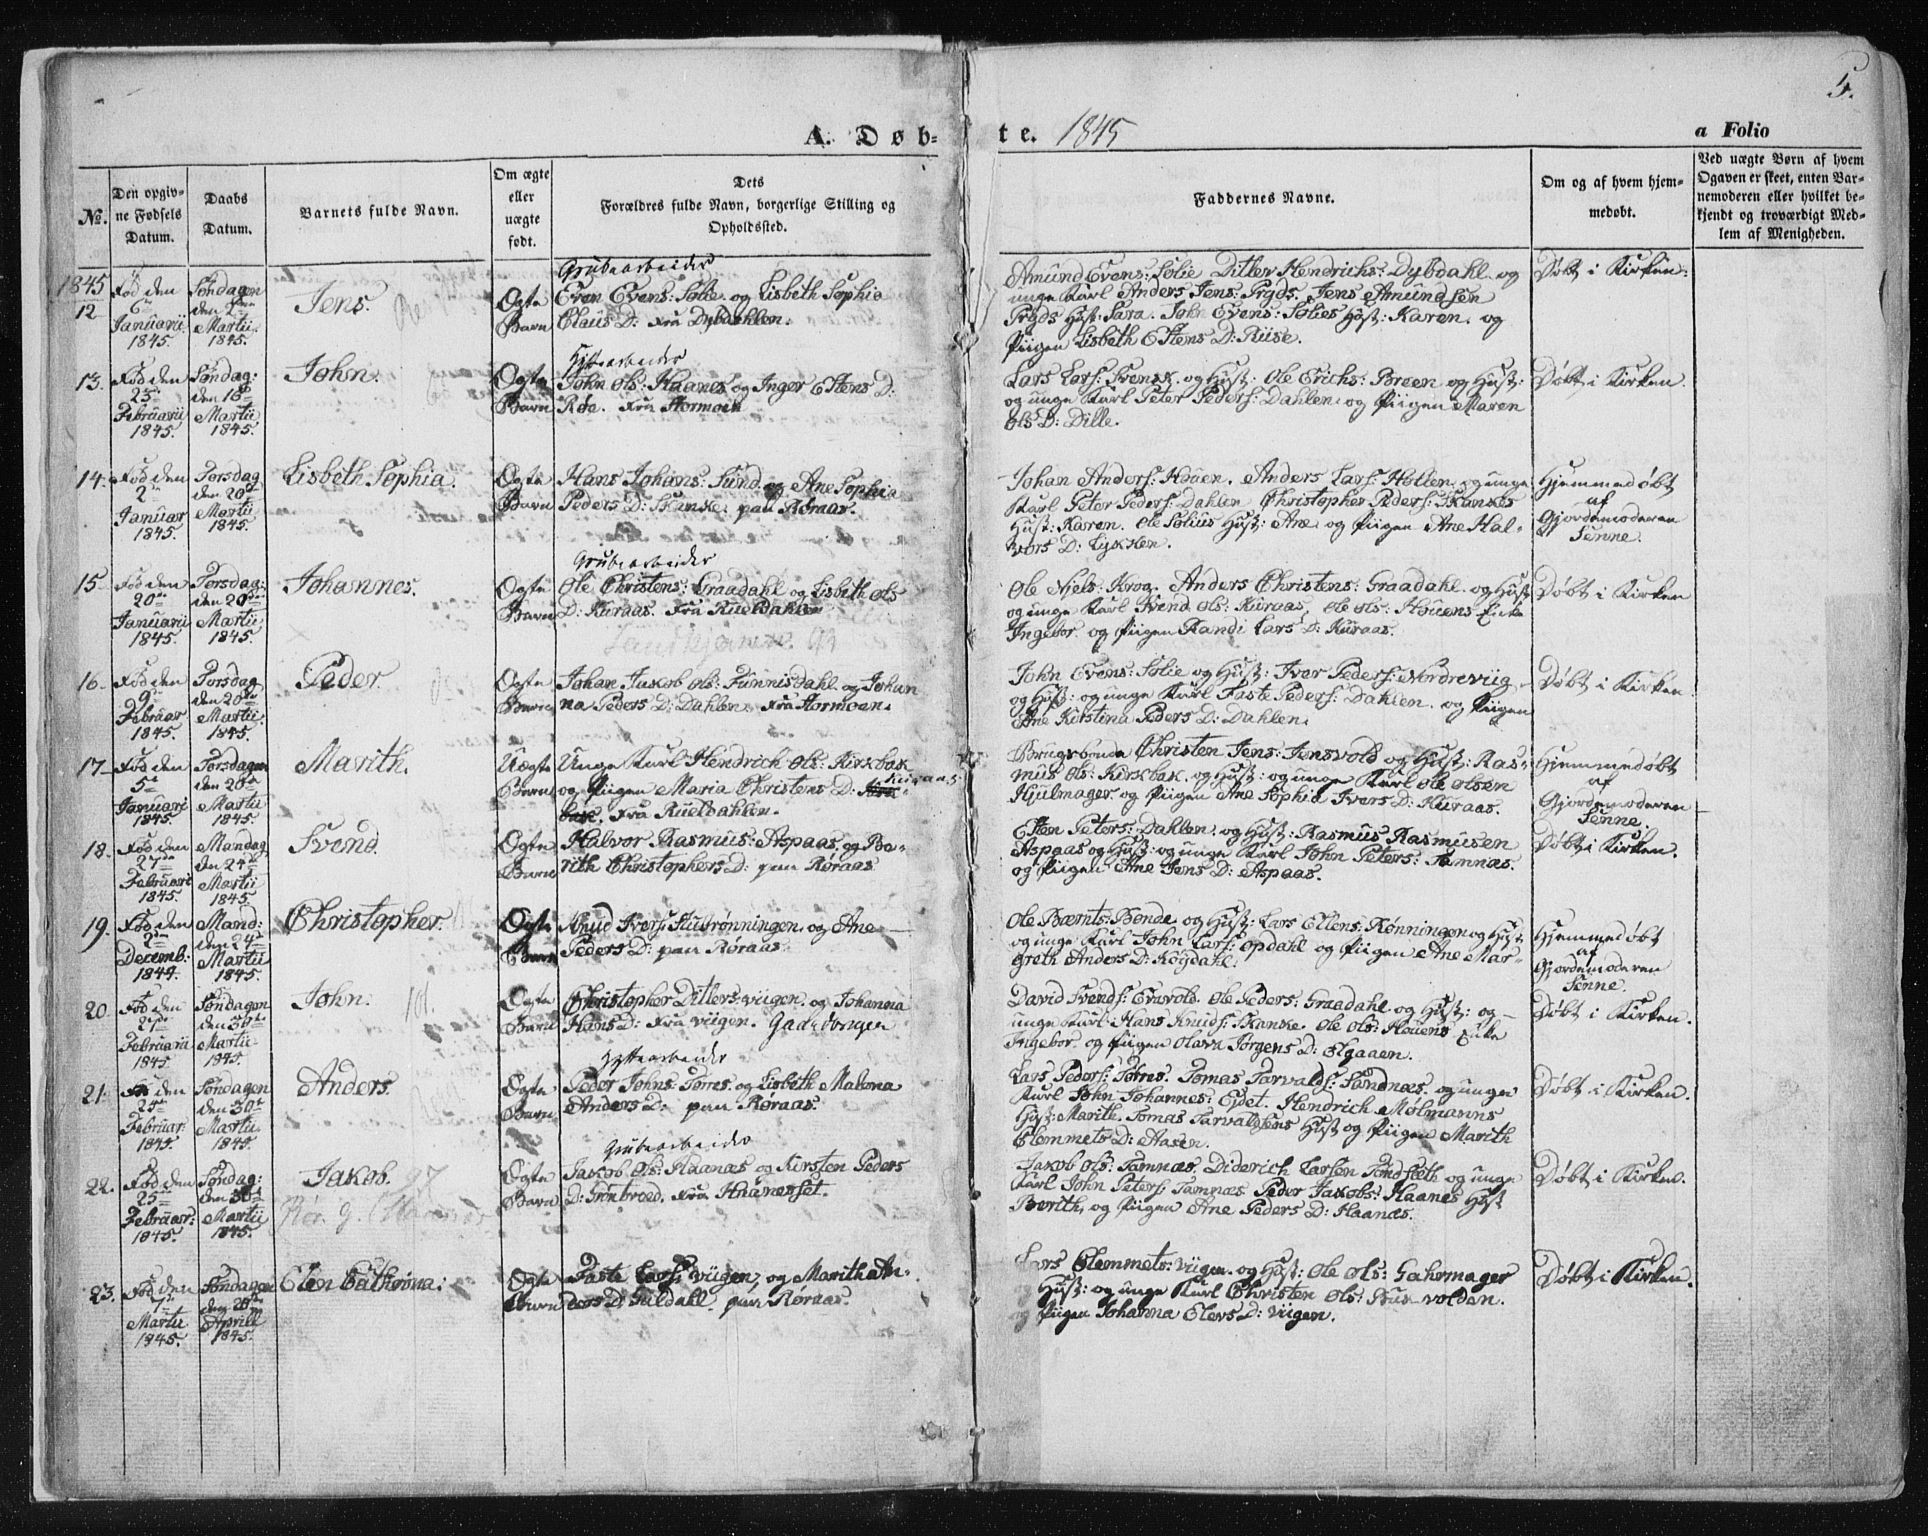 5.
A. Døbte. 1845
a Folio
No.
Den opgivne Fødsels Datum.
Daabs Datum.
Barnets fulde Navn.
Om ægte eller uægte født.
Dets Forældres fulde Navn, borgerlige Stilling og Opholdssted.
Faddernes Navne.
Om og af hvem hjemmedøbt.
Ved uægte Børn af hvem
Ogaven er skeet, enten Barnemoderen eller hvilket bekjendt og troværdigt Medlem af Menigheden.
1845
12
Fød den 6te Januarii 1845.
Søndagen den Martii 1845.
Jens.
Ægte Barn
Grubearbeider
Even Evens: Sølie og Lisbeth Sophia
Claus D: fra Dybdahlen.
Amund Evens: Sølie Ditlev Hendrichs: Dybdahl og
unge Karl Anders Jens: Prÿds. Jens Amundsen
Prÿds Hust: Sara. John Evens: Sølies Hust: Karen. og
Piigen Lisbeth Estens D: Riise.
Døbt i Kirken.
13.
Fød den 25de Februarii 1845.
Søndag: den 16de Martii 1845.
John.
Ægte Barn
Hÿttearbeider
John Ols: Haanes og Inger Estens D:
Røe. fra Hormoen
Lars Lars: Svensk. og Hust: Ole Erichs: Breen og Hust:
og unge Karl Peter Peders: Dahlen. og Piigen Maren
Ols D: Dille.
Døbt i Kirken.
14.
Fød den 2den Januar 1845.
Torsdag den 20de Martii 1845.
Lisbeth Sophia.
Ægte Barn
Hans Johans: Sund og Ane Sophia
Peders D: Skanke. paa Røraas.
Johan Anders: Houen. Anders Lars: Hollen. og unge
Karl Peter Peders: Dahlen Christopher Peders: Skankes
Hust: Karen. Ole Solius Hust: Ane og Piigen Ane Hal-
vors D: Lykken.
Hjemmedøbt
af
Gjordemoderen
Senne.
15
Fød den 20de Januarii 1845
Torsdag: den 20de Martii 1845.
Johannes.
Ægte Barn
Grubearbeider
Ole Christens: Graadahl og Lisbeth Ols
D: Kuraas. fra Rueldahlen
Ole Niels: Krog. Anders Christens: Graadahl. og Hust
og unge Karl Svend Ols: Kuraas. Ole Ols: Houens Enke
Ingebor. og Piigen Randi Lars D: Kuraas.
Døbt i Kirken
16.
Fød den 9de Februar 1845.
Torsdag den 20de Martii 1845.
Peder.
Ægte Barn
Johan Jakob Ols: Funnisdahl og Johan
na Peders D: Dahlen. fra Hormoen.
John Evens: Sølie og Hust: Iver Peders: Nordreviig
og Hust: og unge Karl Faste Peders: Dahlen. og Piigen
Ane Kirstina Peders D: Dahlen.
Døbt i Kirken
17.
Fød den 5te Januari 1845.
Torsdagen den 20de Martii 1845
Marith.
Uægte Barn
Unge Karl Hendrich Ols: Kirkbak
og Piigen Maria Christens D: Kuraas
fra Rueldahlen.
Brugsbonde Christen Jens: Jensvold og Hust: Ras-
mus Ols: Kirkbak. og Hust: og unge Karl Ole Olsen
Hjulmager og Piigen Ane Sophia Ivers D: Kuraas.
Hjemmedøbt
af
Gjordemoderen
Senne.
18.
Fød den 27de Februari 1845.
Mandag den 24de Martii 1845.
Svend
Ægte Barn
Halvor Rasmus: Aspaas og Be-
rith Christophers D: paa Røraas
Esten Peters: Dahlen. og Hust: Rasmus Rasmusen
Aspaas og Hust: og unge Karl John Peters: Tamnæs.
og Piigen Ane Jens D: Aspaas.
Døbt i Kirken.
19.
Fød den 2den Decemb: 1844.
Mand: den 24de Martii 1845.
Christopher.
Ægte Barn
Knud Ivers: Husrønningen. og Ane
Peders D: paa Røraas.
Ole Bærnts: Bonde. og Hust: Lars Ellens: Rønningen og Hust
og unge Karl John Lars: Opdahl og Piigen Ane Mar-
greth Anders D: Røÿdahl.
Hjemmedøbt
af
Gjordemoderen
Senne.
20.
Fød den Februarii 1845.
Søndagen den 30te Martii 1845.
John.
101.
Ægte Barn
Christopher Ditlevs: viigen. og Johanna
Hans D: fra viigen.
David Svends: Evavold. Ole Peders: Graadahl og Hust: og
unge Karl Hans Knuds: Skanke Ole Ols: Houens Enke
Ingebor. og Piigen Olava Jørgens D: Elgaaen.
Døbt i Kirken.
21.
den 25de Februar: 1845
Søndagen den 30te Martii 1845.
Anders.
Ægte Barn
Hÿttearbeider
Peder Johns: Torres. og Lisbeth Malena
Anders D: paa Røraas.
Lars Peders: Torres. Tomas Tarvalds: Sandnæs. og unge
Karl John Johannes: Eÿdet. Hendrich Mølmanns
Hust: Marith. Tomas Tarvaldsens Hust og Piigen Marith
Clemmets D: Aasen.
Døbt i Kirken.
22.
Fød den 25de Februar: 1845.
Søndag: den 30te Martii 1845.
Jakob.
97
Ægte Barn
Grubearbeider
Jakob Ols: Haanæs og Kirsten Peders
D: Grønbroed. fra Haaneset.
Jakob Ols: Tamnæs. Diderich Larsen Tomseth og unge
Karl John Peters: Tamnæs Peder Jakobs: Haanes Hust
Berith, og Piigen Ane Peders D: Haanæs.
Døbt i Kirken.
23.
Fød den Martii 1845.
Søndagen den Aprill 1845.
Elen Cathrina.
Ægte Barn
Faste Lars: viigen, og Marith An-
ders D: Guldahl. paa Røraas.
Lars Clemmets: viigen. og Hust: Ole Ols: Gahrmager
og Hust: og unge Karl Christen Ols:
og Piigen Johanna Elers D: viigen.
Døbt i Kirken.